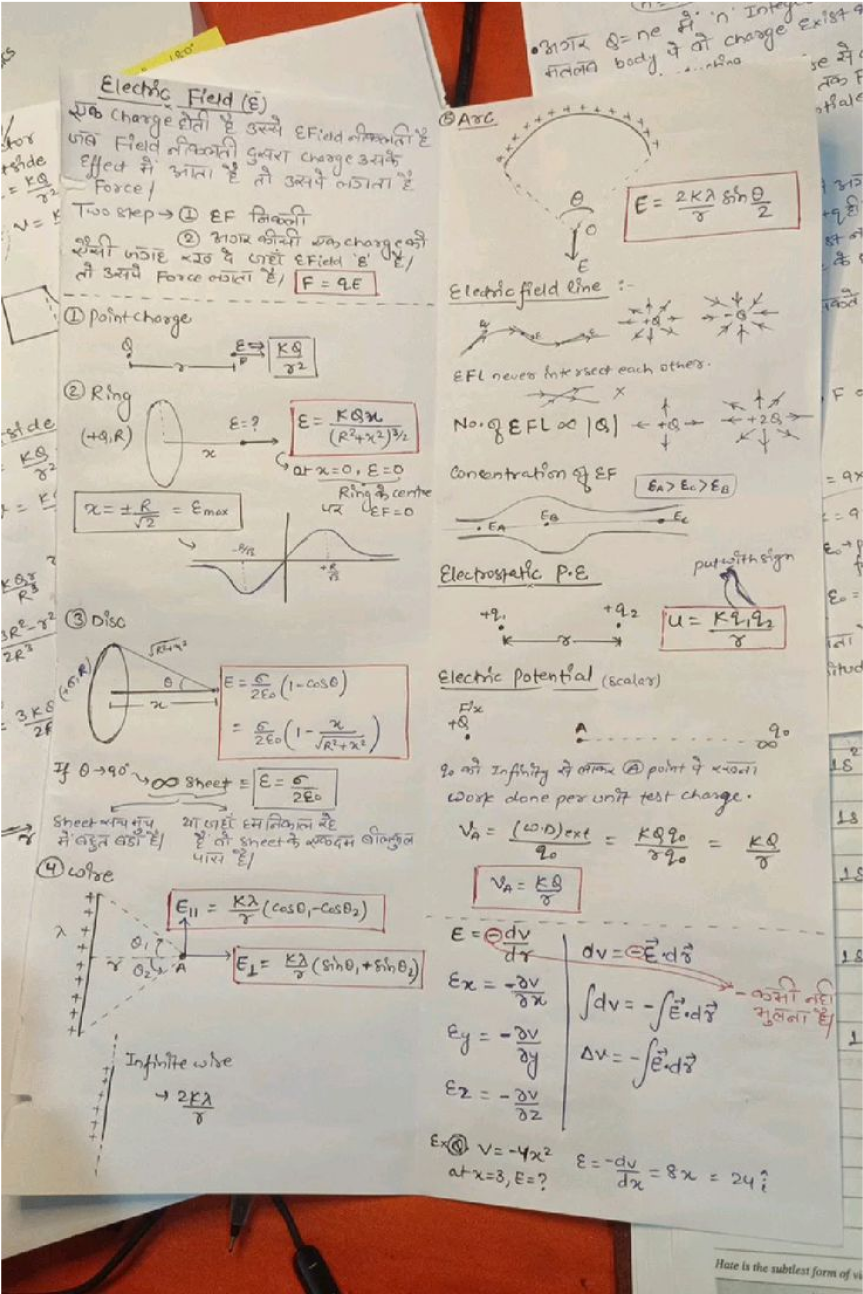 Electric Field (E)
एक charge होती है उससे E Field निकलती है
जब Field निकलती दुसरा charge उसके
Effect में आता है तो उसपे लगता है
Force/
Two step → ① EF निकली
② अगर कीसी एक charge को
ऐसी जगह रख दे जहाँ E Field 'E' है/
तो उसपे Force लगता है/ F = qE
① Point charge
Q r P E ⇒ KQ/r²
② Ring
(+Q,R) x E=? E = KQx/(R²+x²)^3/2
at x=0, E=0
Ring के centre
पर EF=0
x = ± R/√2 = Emax
-R/√2 +R/√2
③ Disc
(+σ,R) √R²+x² θ x
E = σ/2ε₀ (1-cosθ)
= σ/2ε₀ (1 - x/√R²+x²)
If θ→90° ↘ ∞ sheet = E = σ/2ε₀
Sheet सच मुच में बहुत बडी है/
या जहाँ हम निकाल रहे है वो sheet के एकदम बीलकुल पास है/
④ wire
λ r θ₁ θ₂ A
E|| = Kλ/r (cosθ₁-cosθ₂)
E⊥ = Kλ/r (sinθ₁+sinθ₂)
Infinite wire
→ 2Kλ/r
⑤ Arc
θ O E
E = 2Kλ/r sin θ/2
Electric field line :-
+Q -Q
EFL never intersect each other.
×
No. of EFL ∝ |Q| +Q +2Q
Concentration of EF EA > Ec > EB
EA EB Ec
Electrostatic P.E
put with sign
+q₁ r +q₂ U = Kq₁q₂/r
Electric Potential (scalar)
Fix
+Q A q₀
∞
q₀ को Infinity से लाकर Ⓐ point पे रखना
work done per unit test charge.
VA = (W.D)ext/q₀ = KQq₀/rq₀ = KQ/r
VA = KQ/r
E = -dv/dr
dv = -E⃗·dr⃗
Ex = -∂v/∂x
∫dv = -∫E⃗·dr⃗
- कभी नही
भुलना है/
Ey = -∂v/∂y
Δv = -∫E⃗·dr⃗
Ez = -∂v/∂z
Ex Ⓠ V = -4x²
at x=3, E=?
E = -dv/dx = 8x = 24 î
• अगर Q = ne में 'n' Integ
मतलब body पे वो charge exist
Hate is the subtlest form of vi